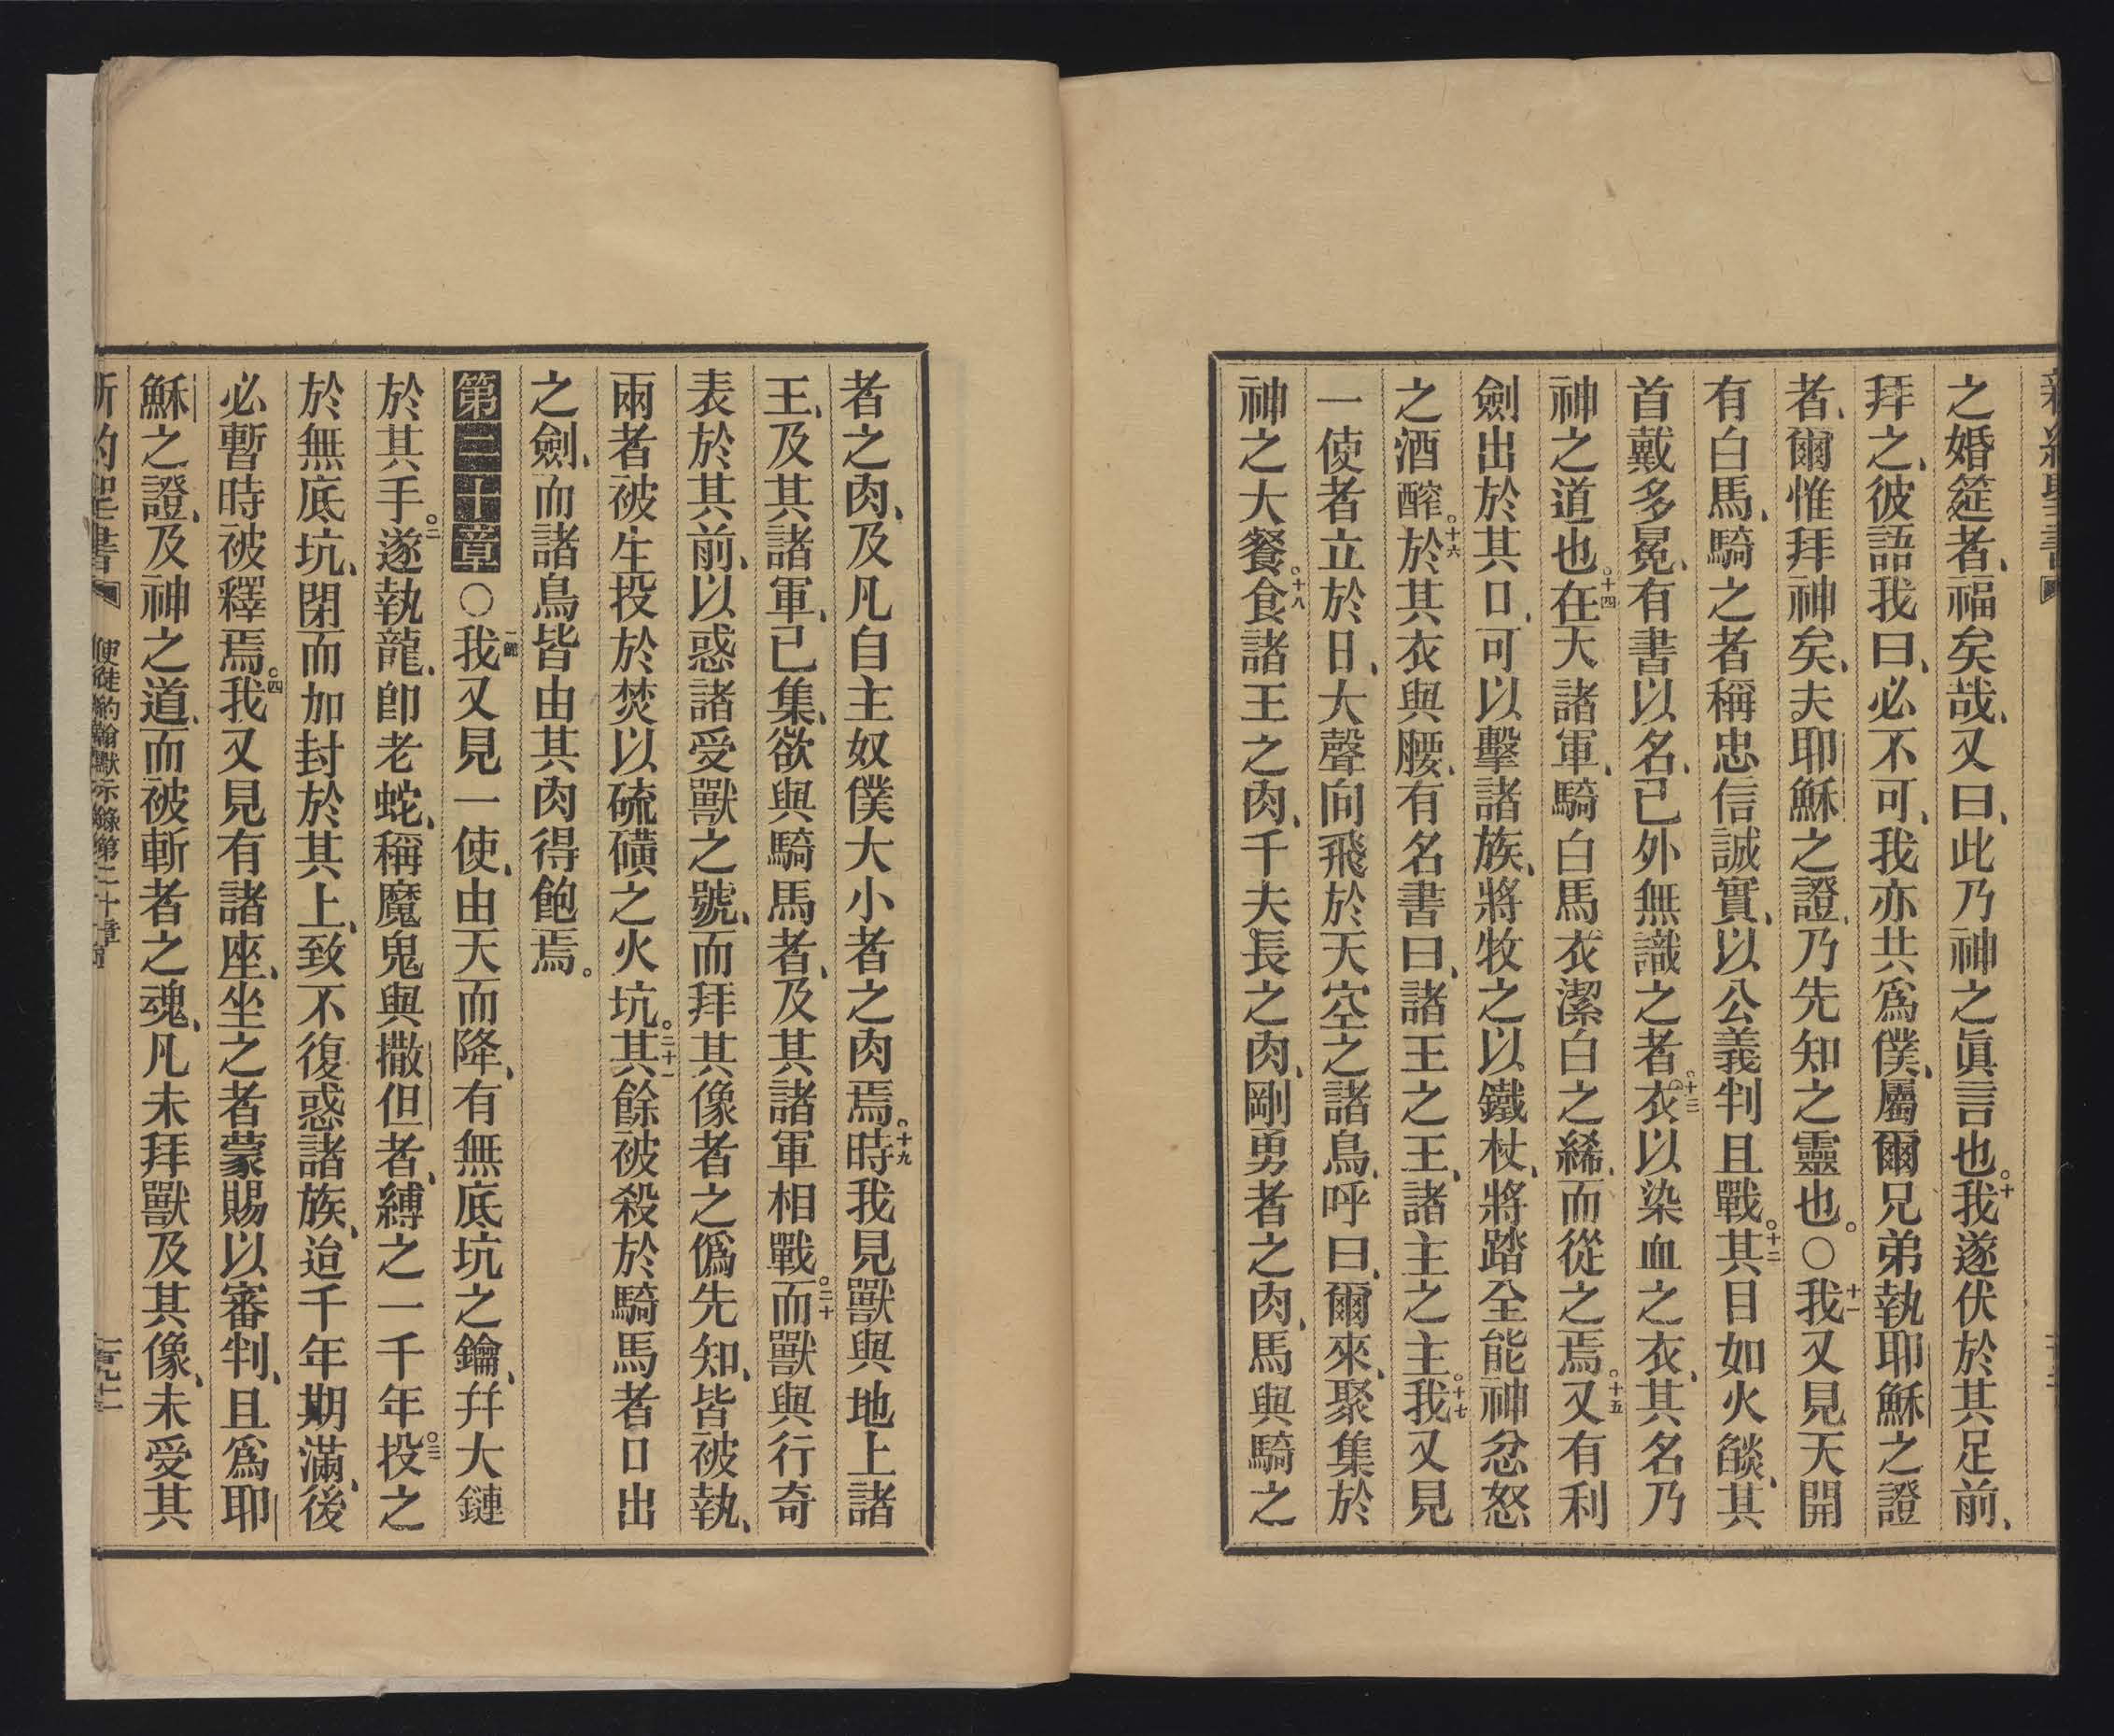 之婚筵者、福矣哉、又曰、此乃神之眞言也。十我遂伏於其足前、
拜之、彼語我曰、必不可、我亦共爲僕、屬爾兄弟執耶穌之證
者、爾惟拜神矣、夫耶穌之證、乃先知之靈也。○十一我又見天開
有白馬、騎之者稱忠信誠實、以公義判且戰。十二其目如火燄、其
首戴多冕、有書以名、已外無識之者。十三衣以染血之衣、其名乃
神之道也。十四在天諸軍、騎白馬衣潔白之絺、而從之焉。十五又有利
劍出於其口、可以擊諸族、將牧之以鐵杖、將踏全能神忿怒
之酒醡。十六於其衣與腰、有名書曰、諸王之王、諸主之主。十七我又見
一使者立於日、大聲向飛於天空之諸鳥、呼曰、爾來、聚集於
神之大餐。十八食諸王之肉、千夫長之肉、剛勇者之肉、馬與騎之
者之肉、及凡自主奴僕大小者之肉焉。十九時我見獸與地上諸
王、及其諸軍、已集、欲與騎馬者、及其諸軍相戰。二十而獸與行奇
表於其前、以惑諸受獸之號、而拜其像者之僞先知、皆被執、
兩者被生投於焚以硫磺之火坑。二十一其餘被殺於騎馬者口出
之劍、而諸鳥皆由其肉得飽焉。
第二十章○一節我又見一使、由天而降、有無底坑之鑰、幷大鏈
於其手。二遂執龍、卽老蛇、稱魔鬼與撒但者、縛之一千年。三投之
於無底坑、閉而加封於其上、致不復惑諸族、迨千年期滿、後
必暫時被釋焉。四我又見有諸座、坐之者蒙賜以審判、且爲耶
穌之證、及神之道、而被斬者之魂、凡未拜獸及其像、未受其
新約聖書 使徒約翰默示錄第二十章